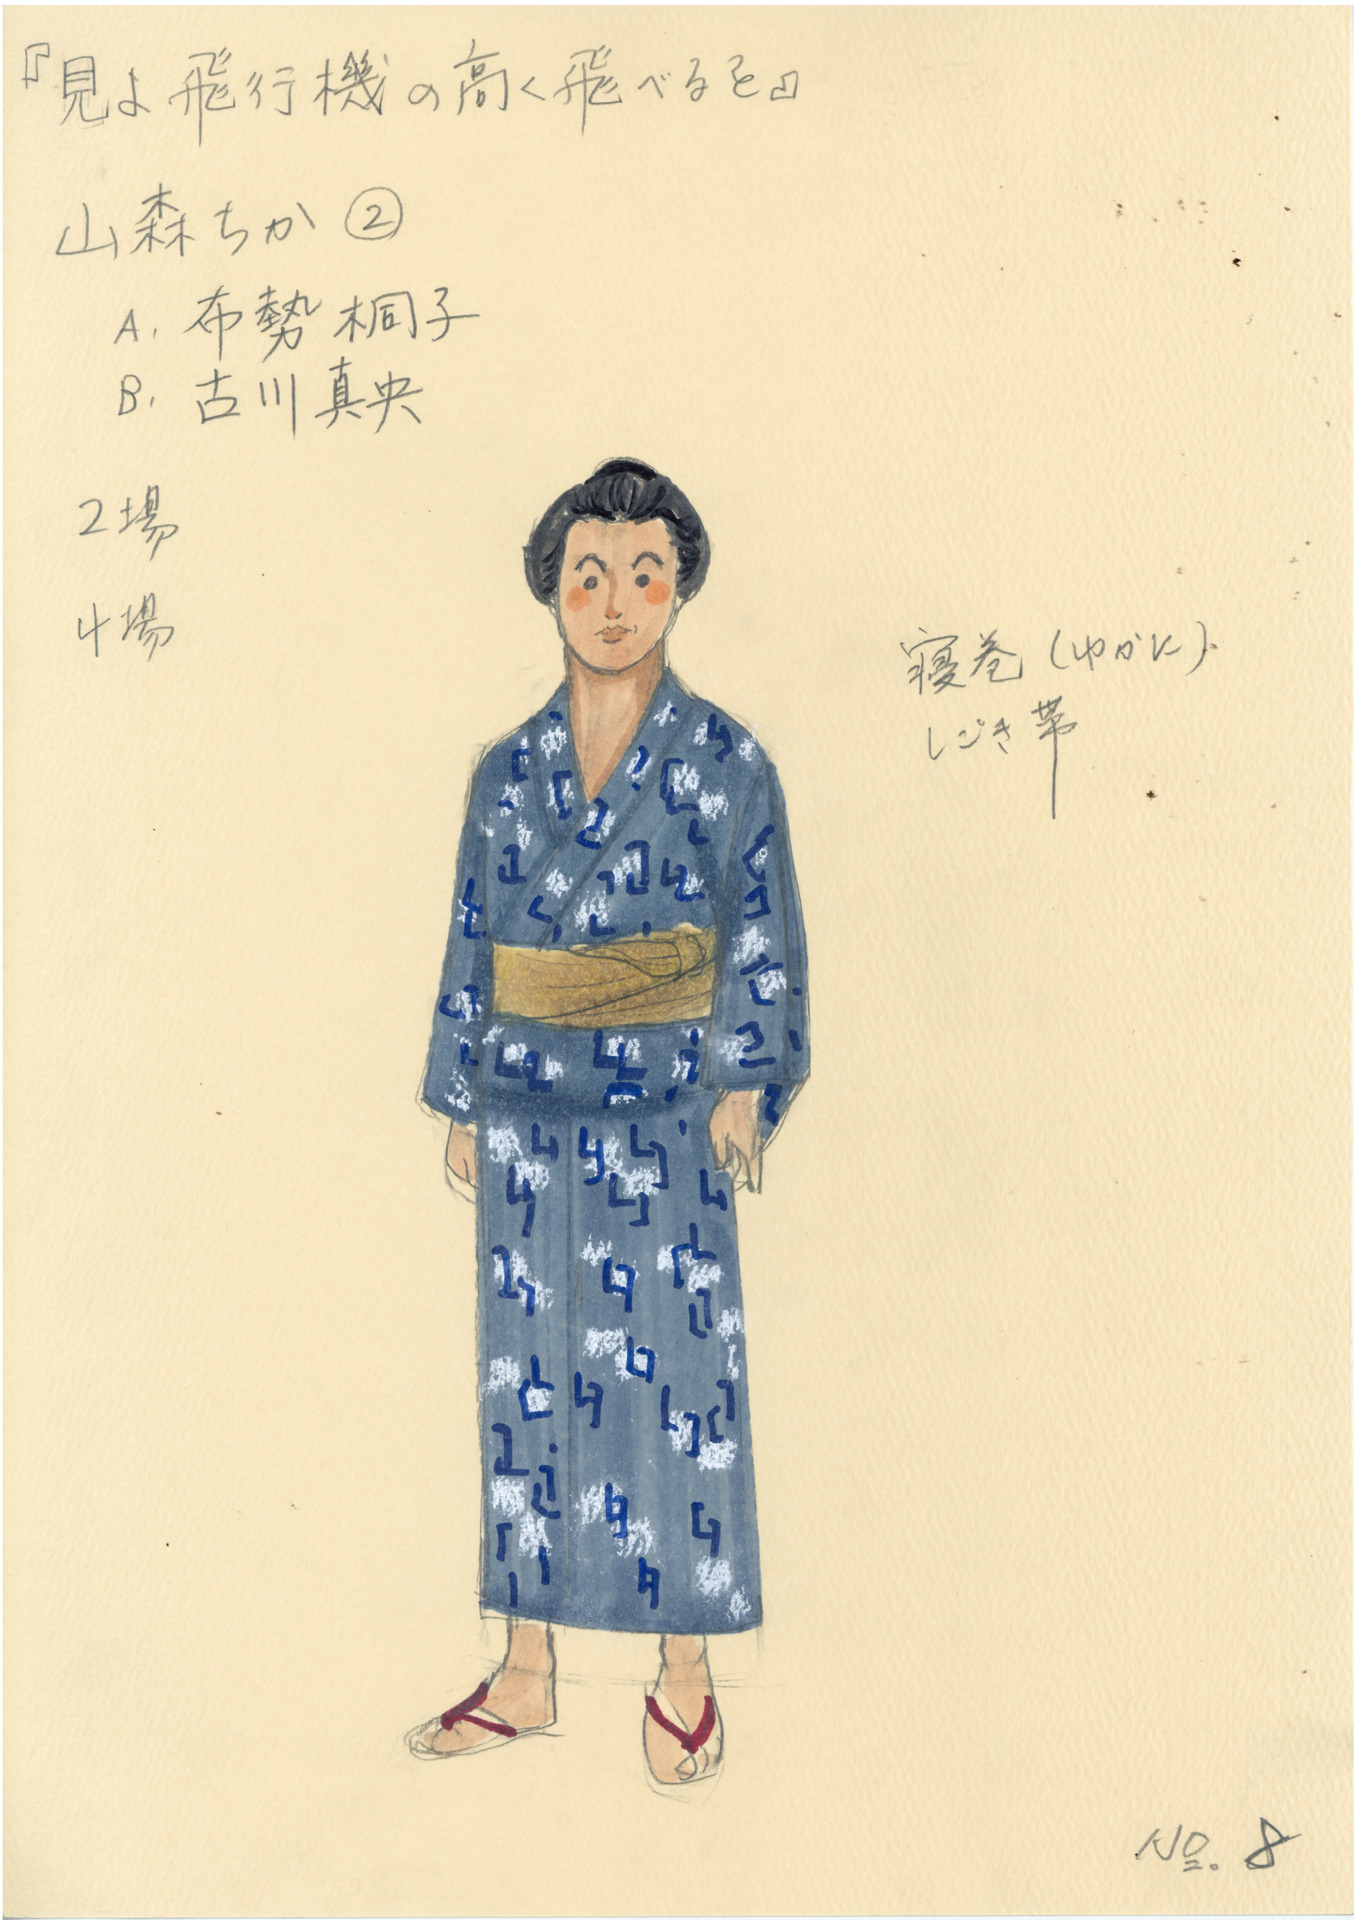 『見よ飛行機の高く飛べるを』
山森ちか ②
A. 布勢桐子
B. 古川真央
2場
4場
寝巻(ゆかに)
しごき帯
No. 8